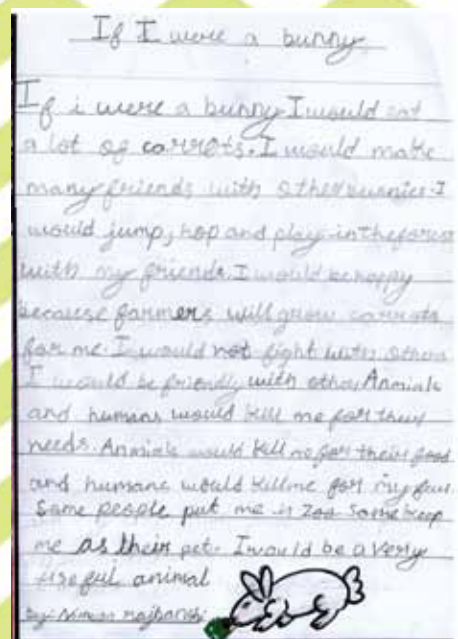 If I were a bunny
If i were a bunny I would eat
a lot of carrots. I would make
many friends with other bunnies. I
would jump, hop and play in the forest
with my friends. I would be happy
because farmers will grow carrots
for me. I would not fight with others
I would be friendly with other Anmials
and humans would kill me for their
needs. Anmials would kill me for their food
and humans would kill me for my fur.
Some people put me in Zoo some keep
me as their pet. I would be a very
useful animal
By: